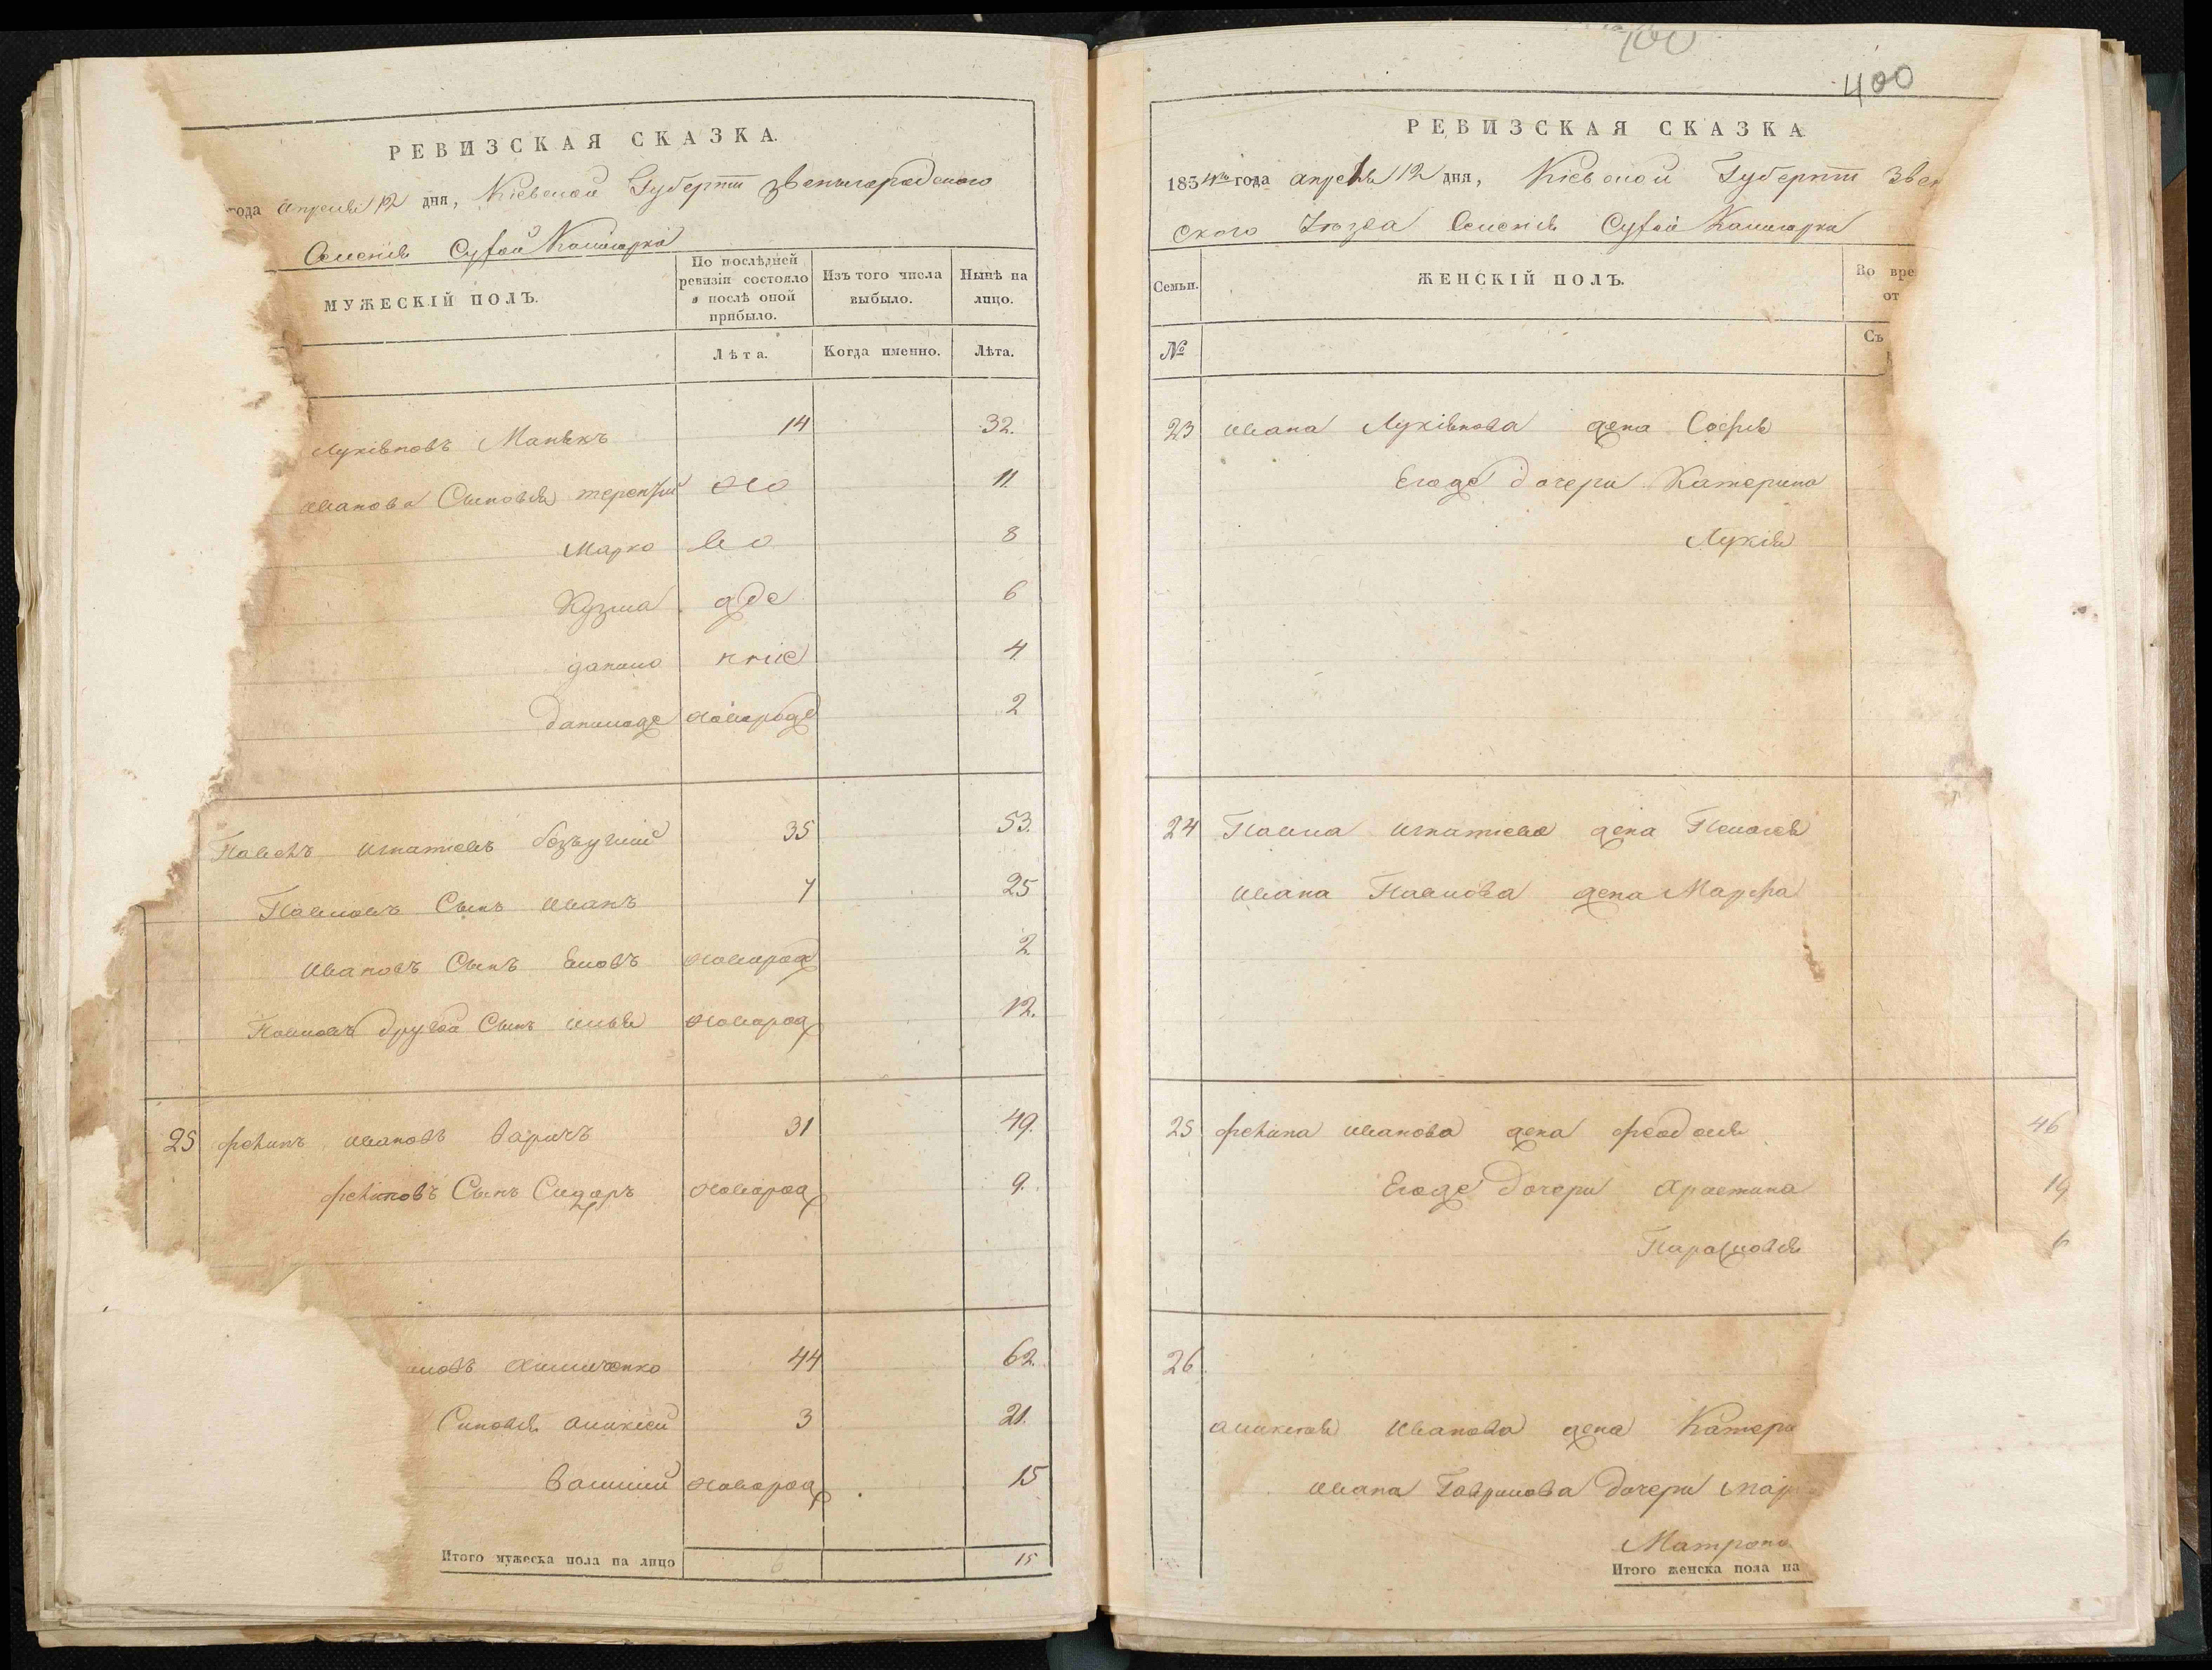 400
400
РЕВИЗСКАЯ СКАЗКА.
года апреля 12 дня, Кіевской Губерніи Звенигородского
Селенія Сухой Калигорки
МУЖЕСКІЙ ПОЛЪ.
По послѣдней ревизіи состояло и послѣ оной прибыло.
Изъ того числа выбыло.
Нынѣ на лицо.
Лѣта.
Когда именно.
Лѣта.
Лукіяновъ 14 32.
Иванова Сыновья терентий 11.
Марко 8
Кузма 6
данило 4
новорожд 2
Павелъ игнатіевъ 35 53.
Павловъ Сынъ Иванъ 7 25
Ивановъ Сынъ новорожд 2
Павловъ другой Сынъ илья новорожд 12.
25 филипъ ивановъ 31 49.
филиповъ Сынъ Сидоръ новорожд 9.
44 62.
Сыновья аликсей 3 21.
Василий новорожд 15
Итого мужеска пола на лицо 15
РЕВИЗСКАЯ СКАЗКА
1854го года апреля 12 дня, Кіевской Губерніи Звен
ского Уѣзда Селенія Сухой Калигорки
Семьи.
ЖЕНСКІЙ ПОЛЪ.
Во вре
от
№
Съ
23 ивана Лукіянова жена Софья
Егоже дочери Катерина
Лукія
24 Павла игнатіева жена Пелагея
ивана Павлова жена Марфа
25 филипа иванова жена феодосія 46
Егоже дочери Христина 19
Парасковья 6
26
аликсея Иванова жена Катери
ивана Гаврилова дочери мар
Матрона
Итого женска пола на